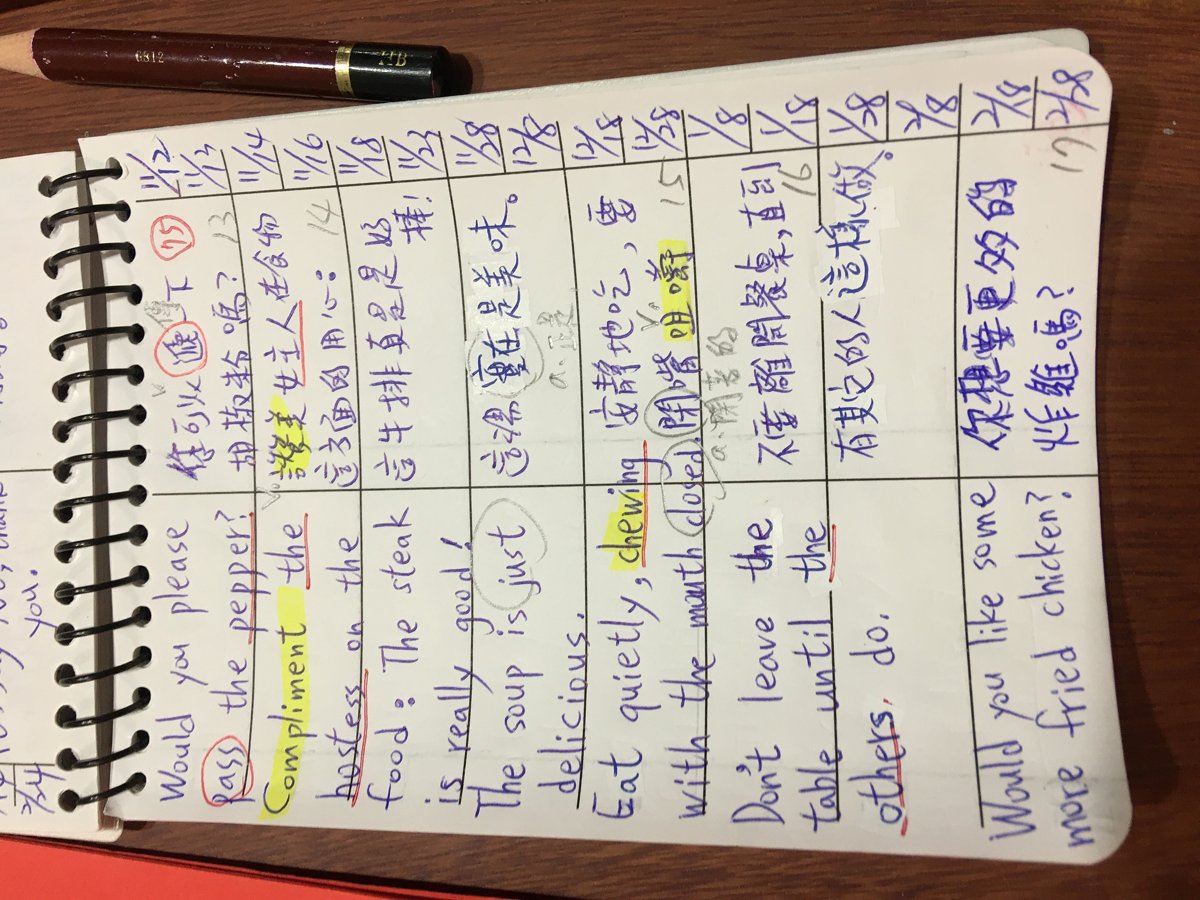 you.
Would you please
pass the pepper?
Compliment the
hostess on the
food: The steak
is really good!
The soup is just
delicious.
Eat quietly, chewing
with the mouth closed.
Don't leave the
table until the
others do.
Would you like some
more fried chicken?
你可以遞一下
胡椒粉嗎?
13
讚美女主人在食物
這方面的用心:
14
這牛排真是是好
棒!
這湯實在是美味。
a. 正是
安靜地吃,要
閉嘴咀嚼
15
a. 閉著的
不要離開餐桌,直到
16
有其它的人這樣做。
你想要更多的
炸雞嗎?
17
11/12
11/13
11/14
11/16
11/18
11/23
11/28
12/8
12/18
12/28
1/8
1/18
1/28
2/8
2/18
2/28
HB